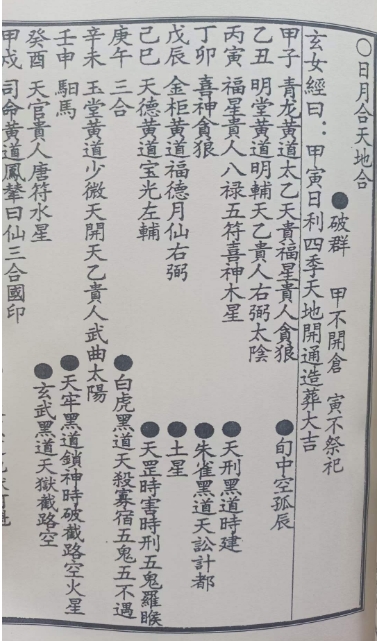 ○日月合天地合
●破群 甲不開倉 寅不祭祀
玄女經曰：甲寅日利四季天地開通造葬大吉
甲子 青龙黃道太乙天貴福星貴人貪狼 ●旬中空孤辰
乙丑 明堂黃道明輔天乙貴人右弼太陰
丙寅 福星貴人八禄五符喜神木星 ●天刑黑道時建
丁卯 喜神貪狼 ●朱雀黑道天訟計都
戊辰 金柜黃道福德月仙右弼 ●土星
己巳 天德黃道宝光左輔 ●天罡時害時刑五鬼羅睺
庚午 三合 ●白虎黑道天殺寡宿五鬼五不遇
辛未 玉堂黃道少微天開天乙貴人武曲太陽
壬申 馹馬 ●天牢黑道鎖神時破截路空火星
癸酉 天官貴人唐符水星 ●玄武黑道天獄截路空
甲戌 司命黃道鳳輦日仙三合國印